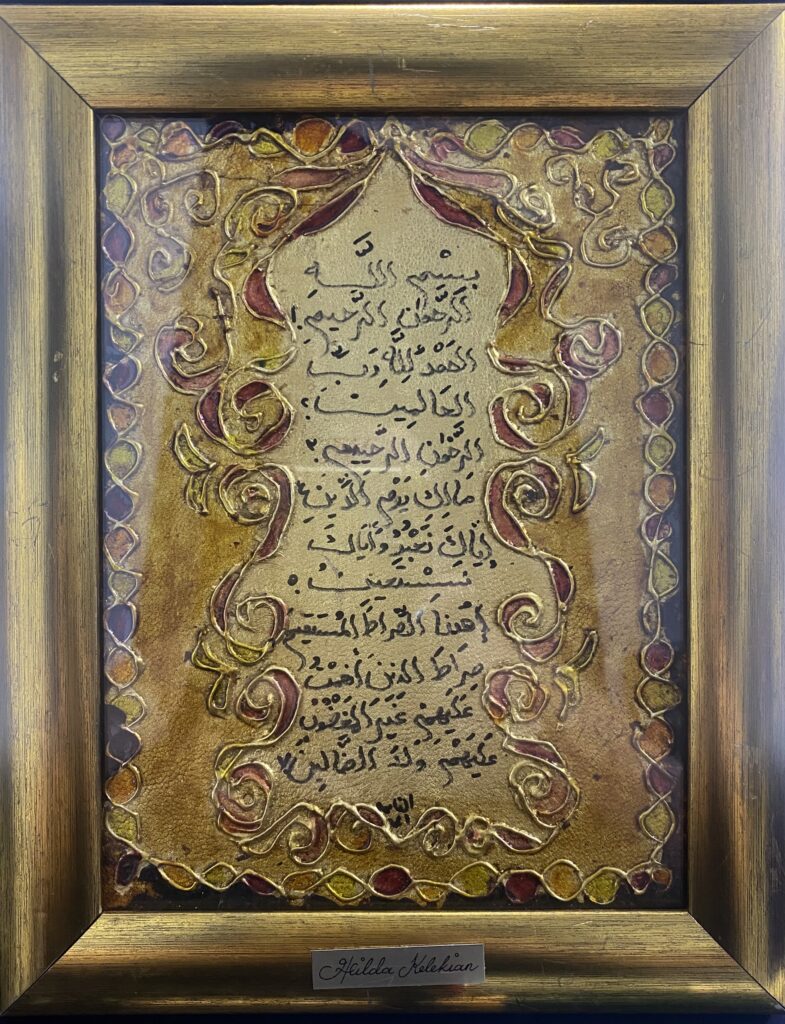 بِسْمِ اللَّهِ
الرَّحْمٰنِ الرَّحِيمِ ١
الحَمْدُ لِلَّهِ رَبِّ
العَالَمِينَ ٢
الرَّحْمٰنِ الرَّحِيمِ ٣
مَالِكِ يَوْمِ الدِّينِ ٤
إِيَّاكَ نَعْبُدُ وَإِيَّاكَ
نَسْتَعِينُ ٥
إهْدِنَا الصِّرَاطَ المُسْتَقِيمَ
صِرَاطَ الَّذِينَ أَنْعَمْتَ
عَلَيْهِمْ غَيْرِ المَغْضُوبِ
عَلَيْهِمْ وَلَا الضَّالِّينَ ٧
Hilda Kelekian